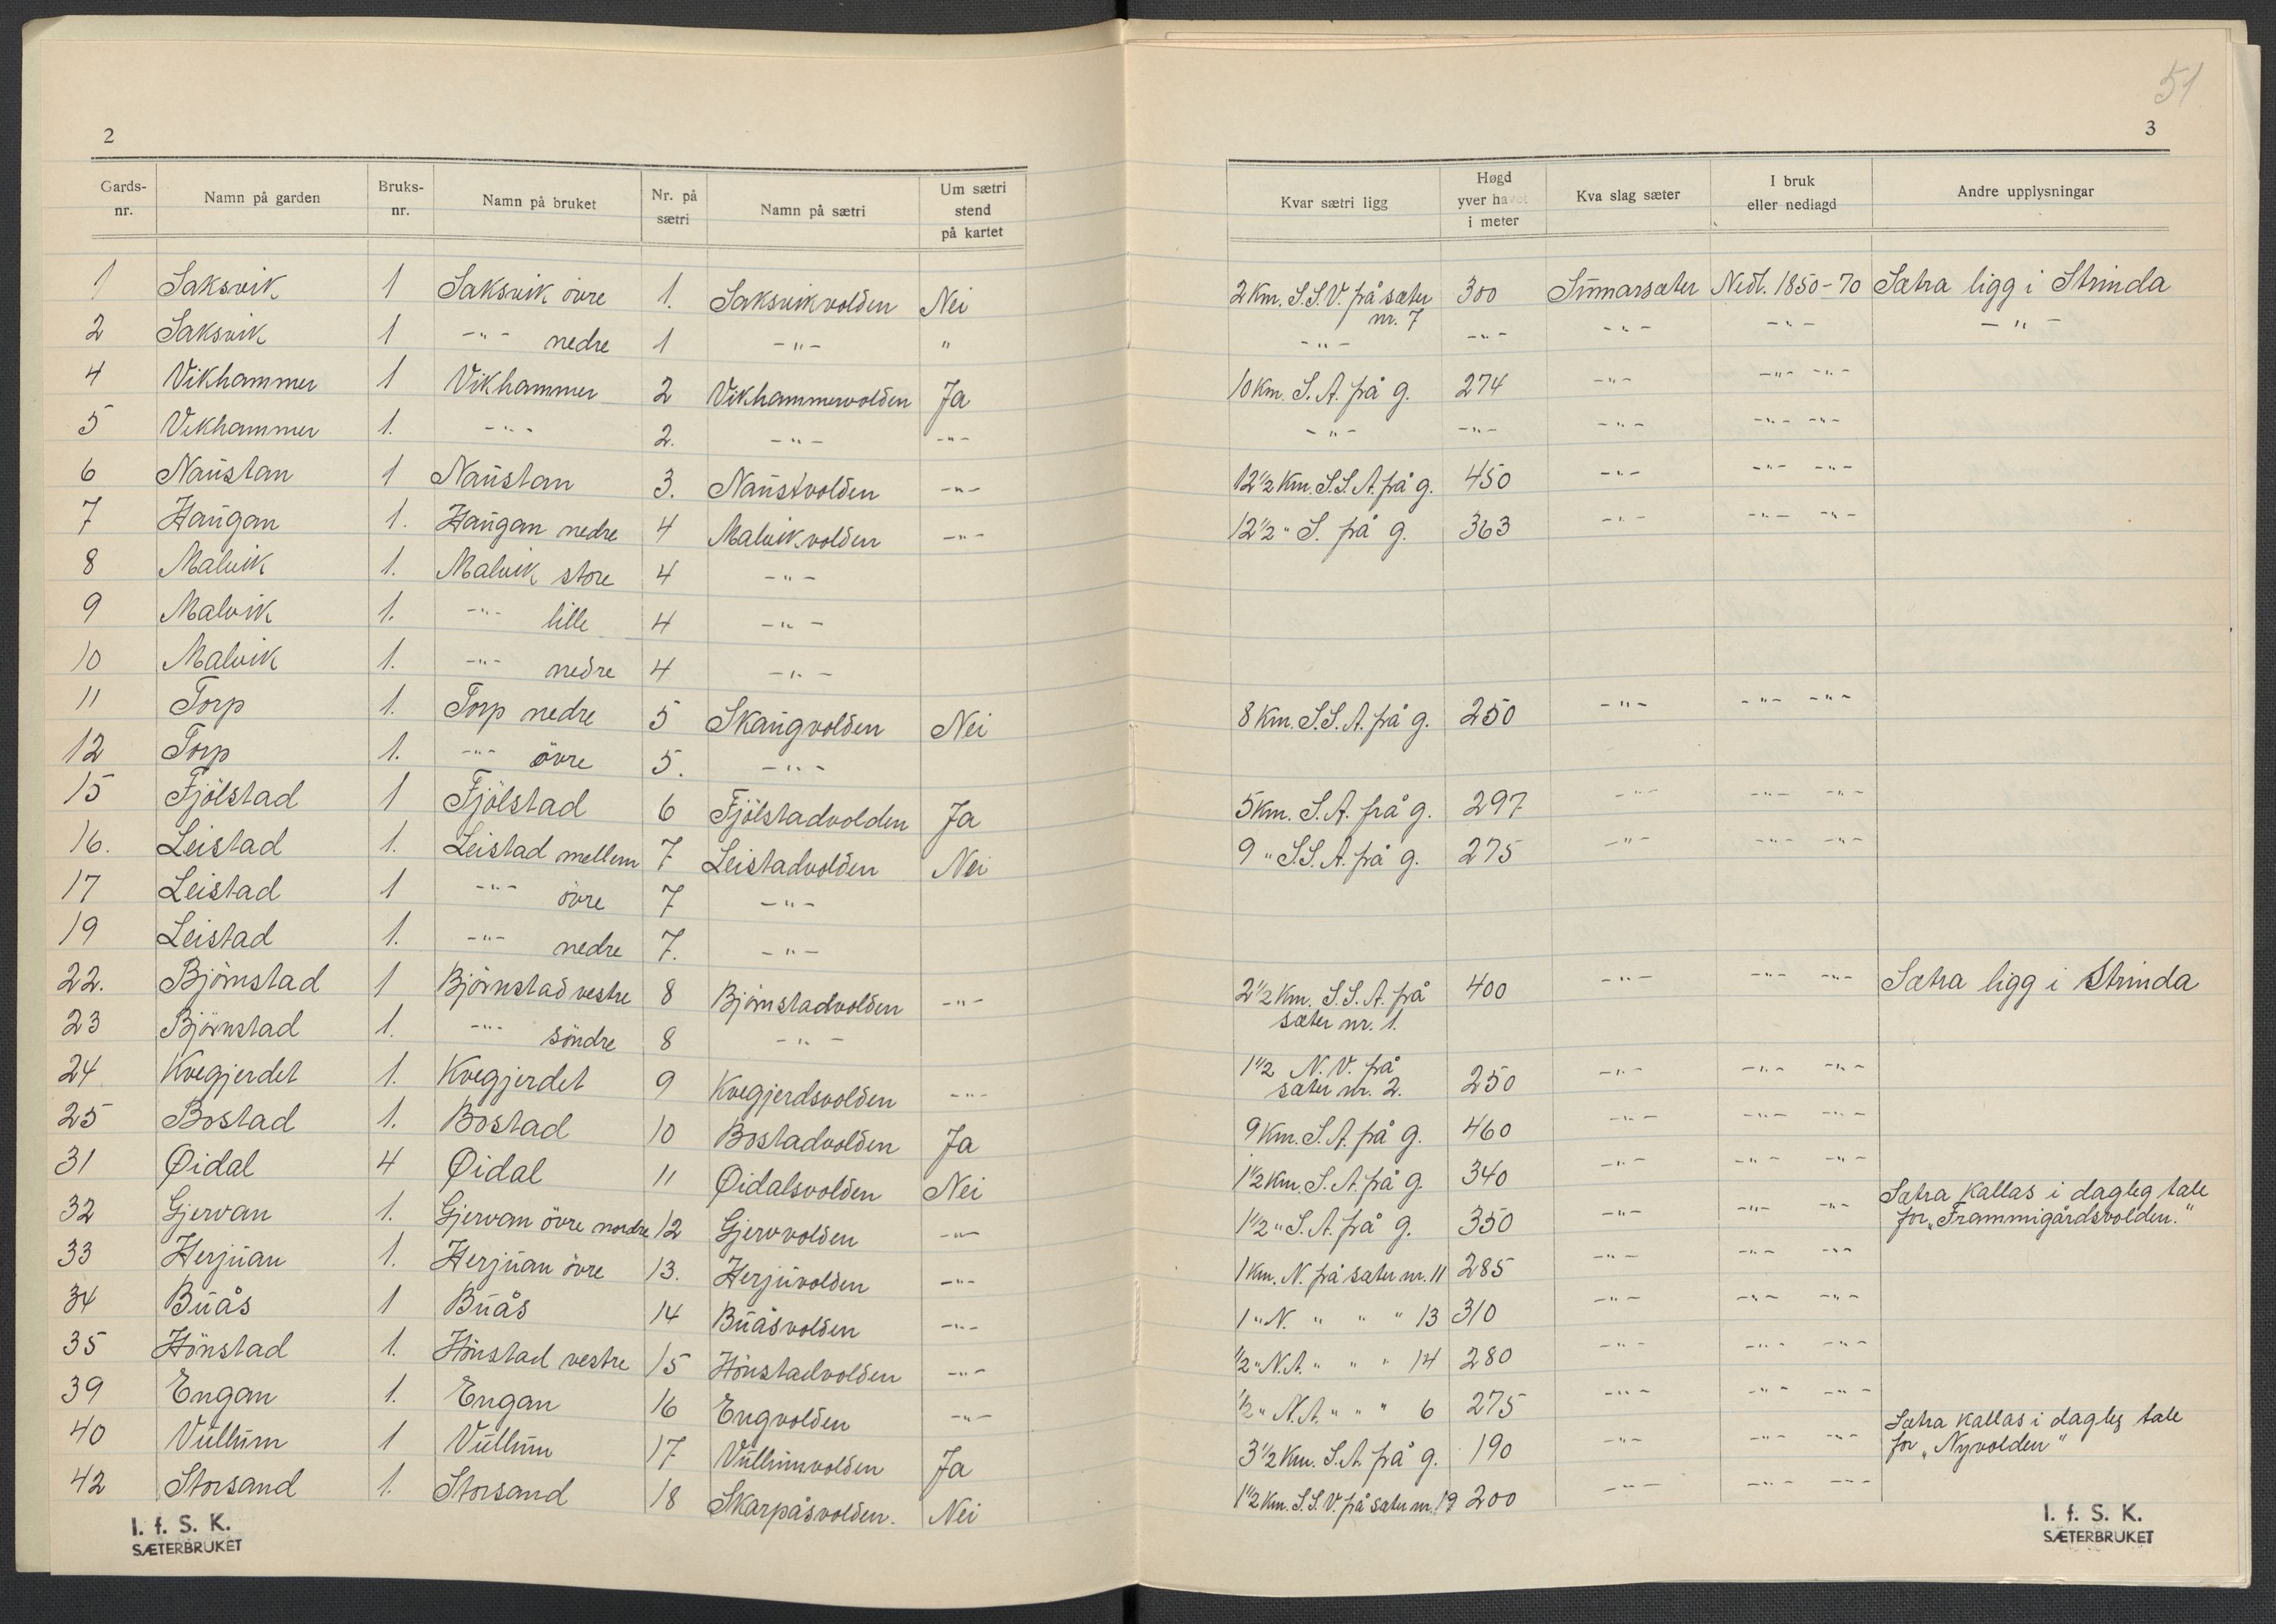 51
2
3
Gards-nr. Namn på garden Bruks-nr. Namn på bruket Nr. på sætri Namn på sætri Um sætri stend på kartet Kvar sætri ligg Høgd yver havet i meter Kva slag sæter I bruk eller nedlagd Andre upplysningar
1 Saksvik 1 Saksvik övre 1. Saksvikvolden Nei 2 Km. S.S.V. frå sæter nr. 7 300 Sŭmarsæter Nedl. 1850-70 Sætra ligg i Strinda
2 Saksvik 1 -"- nedre 1 -"- " -"- -"- -"- -"- -"-
4 Vikhammer 1 Vikhammer 2 Vikhammervolden Ja 10 Km. S.A. frå g. 274 -"- -"- -"-
5 Vikhammer 1. -"- 2. -"- -"- -"- -"- -"- -"- -"-
6 Naŭstan 1 Naŭstan 3. Naŭstvolden -"- 12 1/2 Km. S.S.A. frå g. 450 -"- -"- -"-
7 Haŭgan 1. Haŭgan nedre 4 Malvikvolden -"- 12 1/2 " S. frå g. 363 -"- -"- -"-
8 Malvik 1. Malvik store 4 -"-
9 Malvik 1. -"- lille 4 -"-
10 Malvik 1. -"- nedre 4 -"-
11 Torp 1. Torp nedre 5 Skaŭgvolden Nei 8 Km. S.S.A. frå g. 250 -"- -"- -"-
12 Torp 1. -"- övre 5. -"-
15 Fjölstad 1 Fjölstad 6 Fjölstadvolden Ja 5 Km. S.A. frå g. 297 -"- -"- -"-
16. Leistad 1. Leistad mellem 7 Leistadvolden Nei 9 " S.S.A. frå g. 275 -"- -"- -"-
17 Leistad 1 -"- övre 7 -"-
19 Leistad 1. -"- nedre 7. -"-
22. Björnstad 1 Björnstad vestre 8 Björnstadvolden -"- 2 1/2 Km. S.S.A. frå sæter nr. 1. 400 -"- -"- -"- Sætra ligg i Strinda
23 Björnstad 1. -"- söndre 8 -"-
24 Kvegjerdet 1. Kvegjerdet 9 Kvegjerdsvolden -"- 1 1/2 N.V. frå sæter nr. 2. 250 -"- -"- -"-
25 Bostad 1. Bostad 10 Bostadvolden Ja 9 Km. S.A. frå g. 460 -"- -"- -"-
31 Øidal 4 Øidal 11 Øidalsvolden Nei 1 1/2 Km. S.A. frå g. 340 -"- -"- -"-
32 Gjervan 1. Gjervan övre nordre 12 Gjervvolden -"- 1 1/2 " S.A. frå g. 350 -"- -"- -"- Sætra kallas i dagleg tale for „Frammigårdsvolden."
33 Herjŭan 1. Herjŭan övre 13. Herjŭvolden -"- 1 Km. N. frå sæter nr. 11 285 -"- -"- -"-
34 Bŭås 1 Bŭås 14 Bŭåsvolden -"- 1 " N. " " " 13 310 -"- -"- -"-
35 Hönstad 1. Hönstad vestre 15 Hönstadvolden -"- 1/2 " N.A. " " " 14 280 -"- -"- -"-
39 Engan 1. Engan 16 Engvolden -"- 1/2 " N.A. " " " 6 275 -"- -"- -"-
40 Vŭllŭm 1 Vŭllŭm 17 Vŭllŭmvolden Ja 3 1/2 Km. S.A. frå g. 190 -"- -"- -"- Sætra kallas i dagleg tale for „Nyvolden"
42 Storsand 1. Storsand 18 Skarpåsvolden. Nei 1 1/2 Km. S.S.V. frå sæter nr. 19 200 -"- -"- -"-
I. f. S. K.
SÆTERBRUKET
I. f. S. K.
SÆTERBRUKET